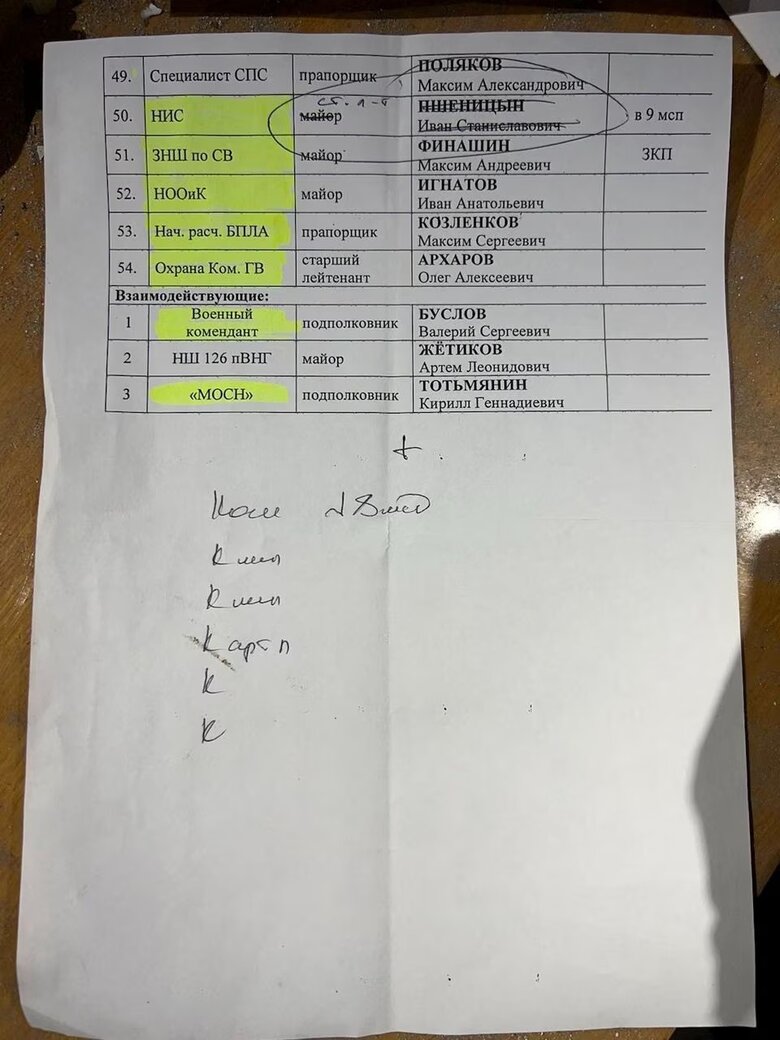 49. Специалист СПС прапорщик ПОЛЯКОВ
Максим Александрович
ст. л-т
50. НИС майор ПШЕНИЦЫН в 9 мсп
Иван Станиславович
51. ЗНШ по СВ майор ФИНАШИН ЗКП
Максим Андреевич
52. НООиК майор ИГНАТОВ
Иван Анатольевич
53. Нач. расч. БПЛА прапорщик КОЗЛЕНКОВ
Максим Сергеевич
54. Охрана Ком. ГВ старший лейтенант АРХАРОВ
Олег Алексеевич
Взаимодействующие:
1 Военный комендант подполковник БУСЛОВ
Валерий Сергеевич
2 НШ 126 пВНГ майор ЖЁТИКОВ
Артем Леонидович
3 «МОСН» подполковник ТОТЬМЯНИН
Кирилл Геннадиевич
+
К
К